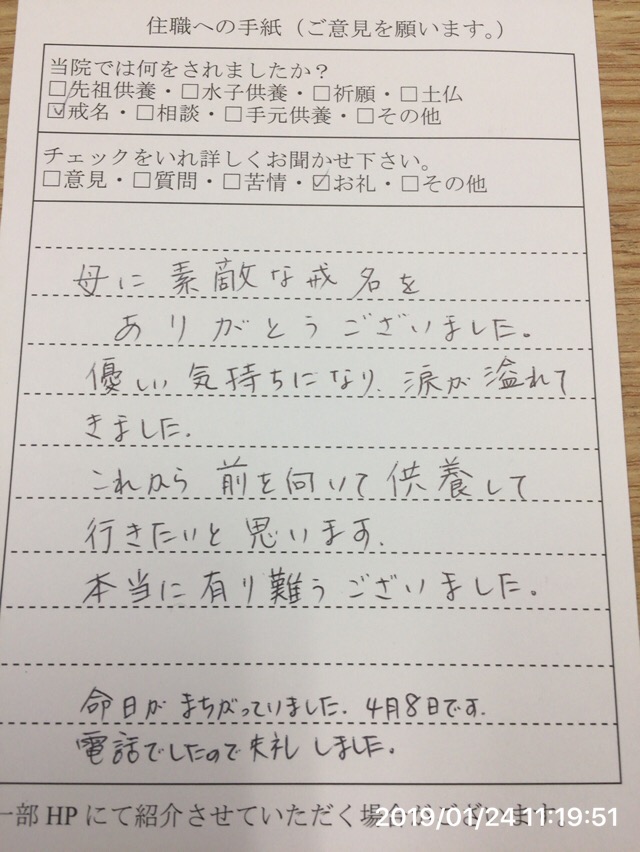 住職への手紙（ご意見を願います。）
当院では何をされましたか？
□先祖供養・□水子供養・□祈願・□土仏
☑戒名・□相談・□手元供養・□その他
チェックをいれ詳しくお聞かせ下さい。
□意見・□質問・□苦情・☑お礼・□その他
母に素敵な戒名を
ありがとうございました。
優しい気持ちになり、涙が溢れて
きました。
これから前を向いて供養して
行きたいと思います。
本当に有り難うございました。
命日がまちがっていました。4月8日です。
電話でしたので失礼しました。
一部HPにて紹介させていただく場合がございます。
2019/01/24 11:19:51